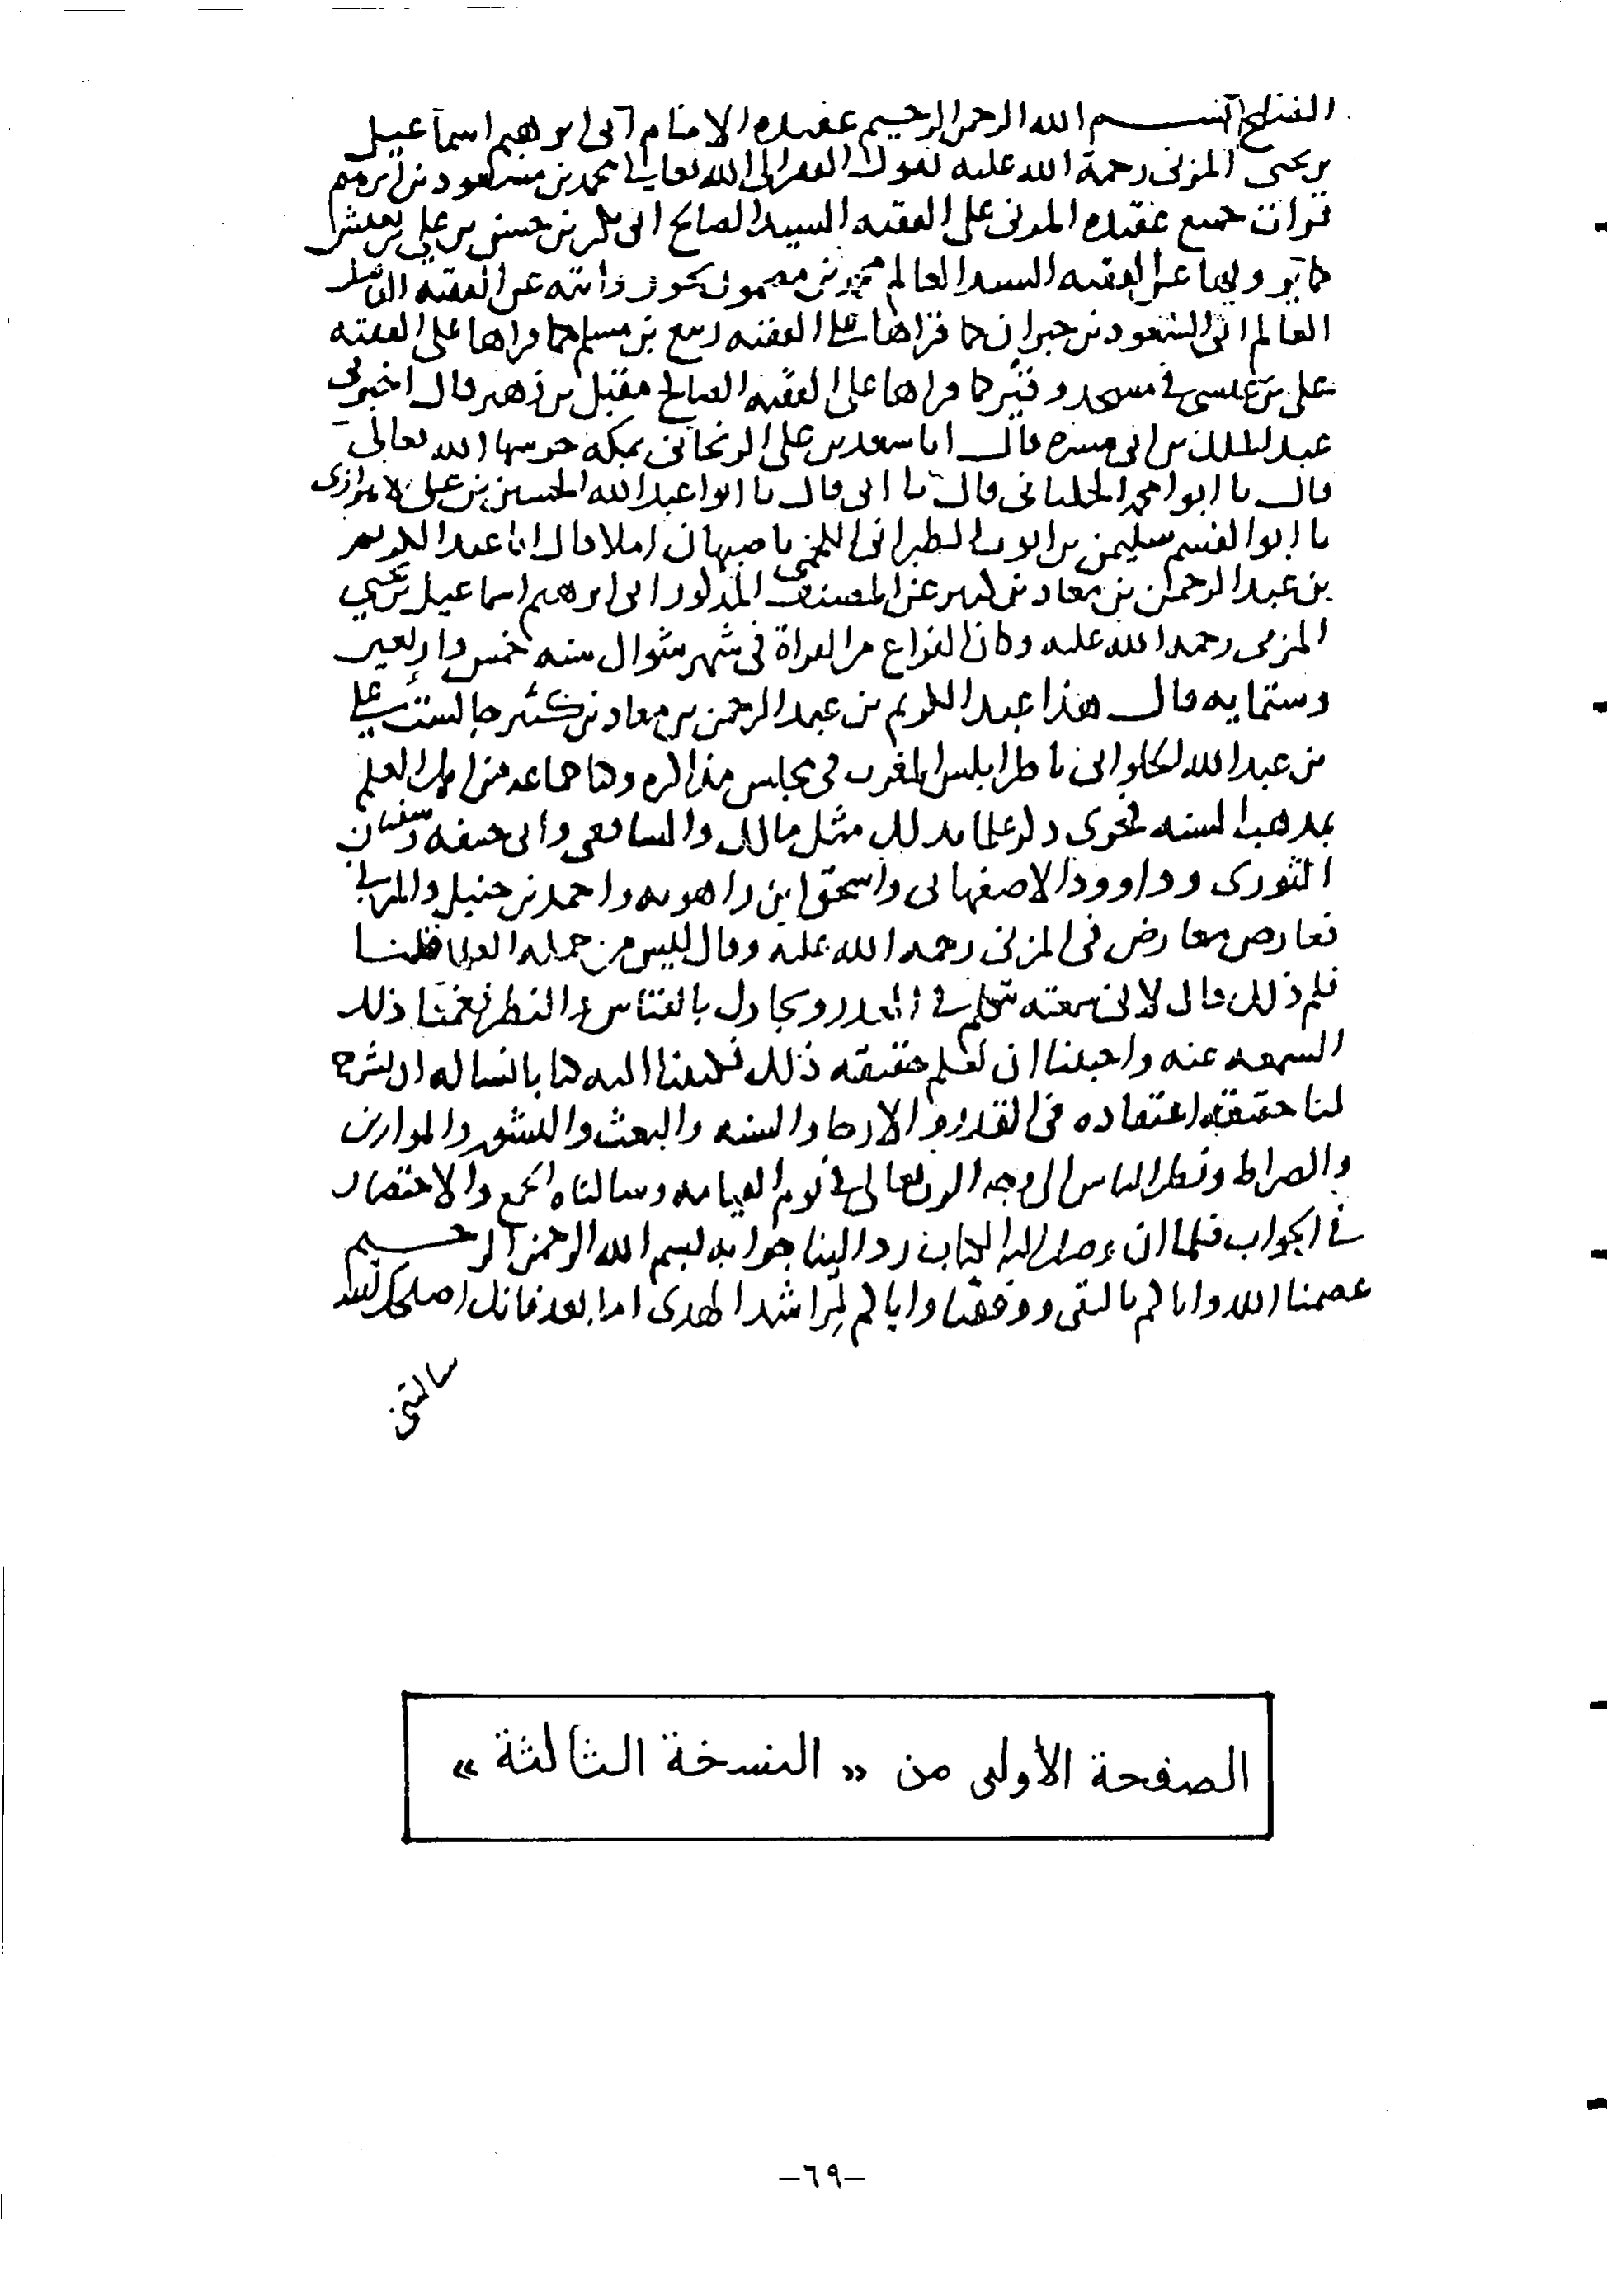 بسم الله الرحمن الرحيم عقيده الامام ابى ابرهيم اسماعيل
بن يحيى المزنى رحمة الله عليه يقول الفقير الى الله تعالى محمد بن مسعود بن ابرهيم
قرات جميع عقيده المزنى على الفقيه السيد الصالح ابى بكر بن حسن بن على بن يعيش
كما يرويها عن الفقيه السيد العالم محمد بن مضمون عن الفقيه
العالم ابى السعود بن خيران كما قراها على الفقيه ربيع بن مسلم كما قراها على الفقيه
على بن عيسى فى مسجد كما قراها على الفقيه الصالح مقبل بن زهير قال اخبرنى
عبد الملك بن ابى ميسره قال انا سعد بن على الزنجانى بمكه حرسها الله تعالى
قال نا ابو محمد قال نا ابى قال نا ابو عبد الله الحسين بن على الاهوازى
نا ابو القسم سليمن بن ايوب الطبرانى اللخمى باصبهان املا قال انا عبد الكريم
بن عبد الرحمن بن معاد بن كثير عن المصنف المذكور ابى ابرهيم اسماعيل بن يحيى
المزنى رحمه الله عليه وكان الفراغ من القراة فى شهر شوال سنه خمس واربعين
وستمايه قال هذا عبد الكريم بن عبد الرحمن بن معاد بن كثير جالست على
بن عبد الله الحلوانى باطرابلس المغرب فى مجلس مذاكره وكنا جماعه من اهل العلم
بمذهب السنه فجرى ذكر علما بذلك مثل مالك والشافعى وابى حنيفه وسفيان
الثورى وداوود الاصفهانى واسحق ابن راهويه واحمد بن حنبل والمزنى
فعارض معارض فى المزنى رحمه الله عليه وقال ليس من جمله العلما فقلنا
فلم ذلك قال لانى سمعته يتكلم فى القدر ويجادل بالقياس والنظر فغمنا ذلك
السمعه عنه واحببنا ان نعلم حقيقه ذلك فكتبنا اليه كتابا نساله ان يشرح
لنا حقيقه اعتقاده فى القدر والارجا والسنه والبعث والنشور والموازين
والصراط ونظر الناس الى وجه الرب تعالى فى يوم القيامه وسالناه الجمع والاختصار
فى الجواب فلما ان وصل اليه الكتاب رد الينا جوابه بسم الله الرحمن الرحيم
عصمنا الله واياكم بالتقى ووفقنا واياكم لمراشد الهدى اما بعد فانك اصلحك الله
سالتنى
الصفحة الأولى من « النسخة الثالثة »
-٦٩-